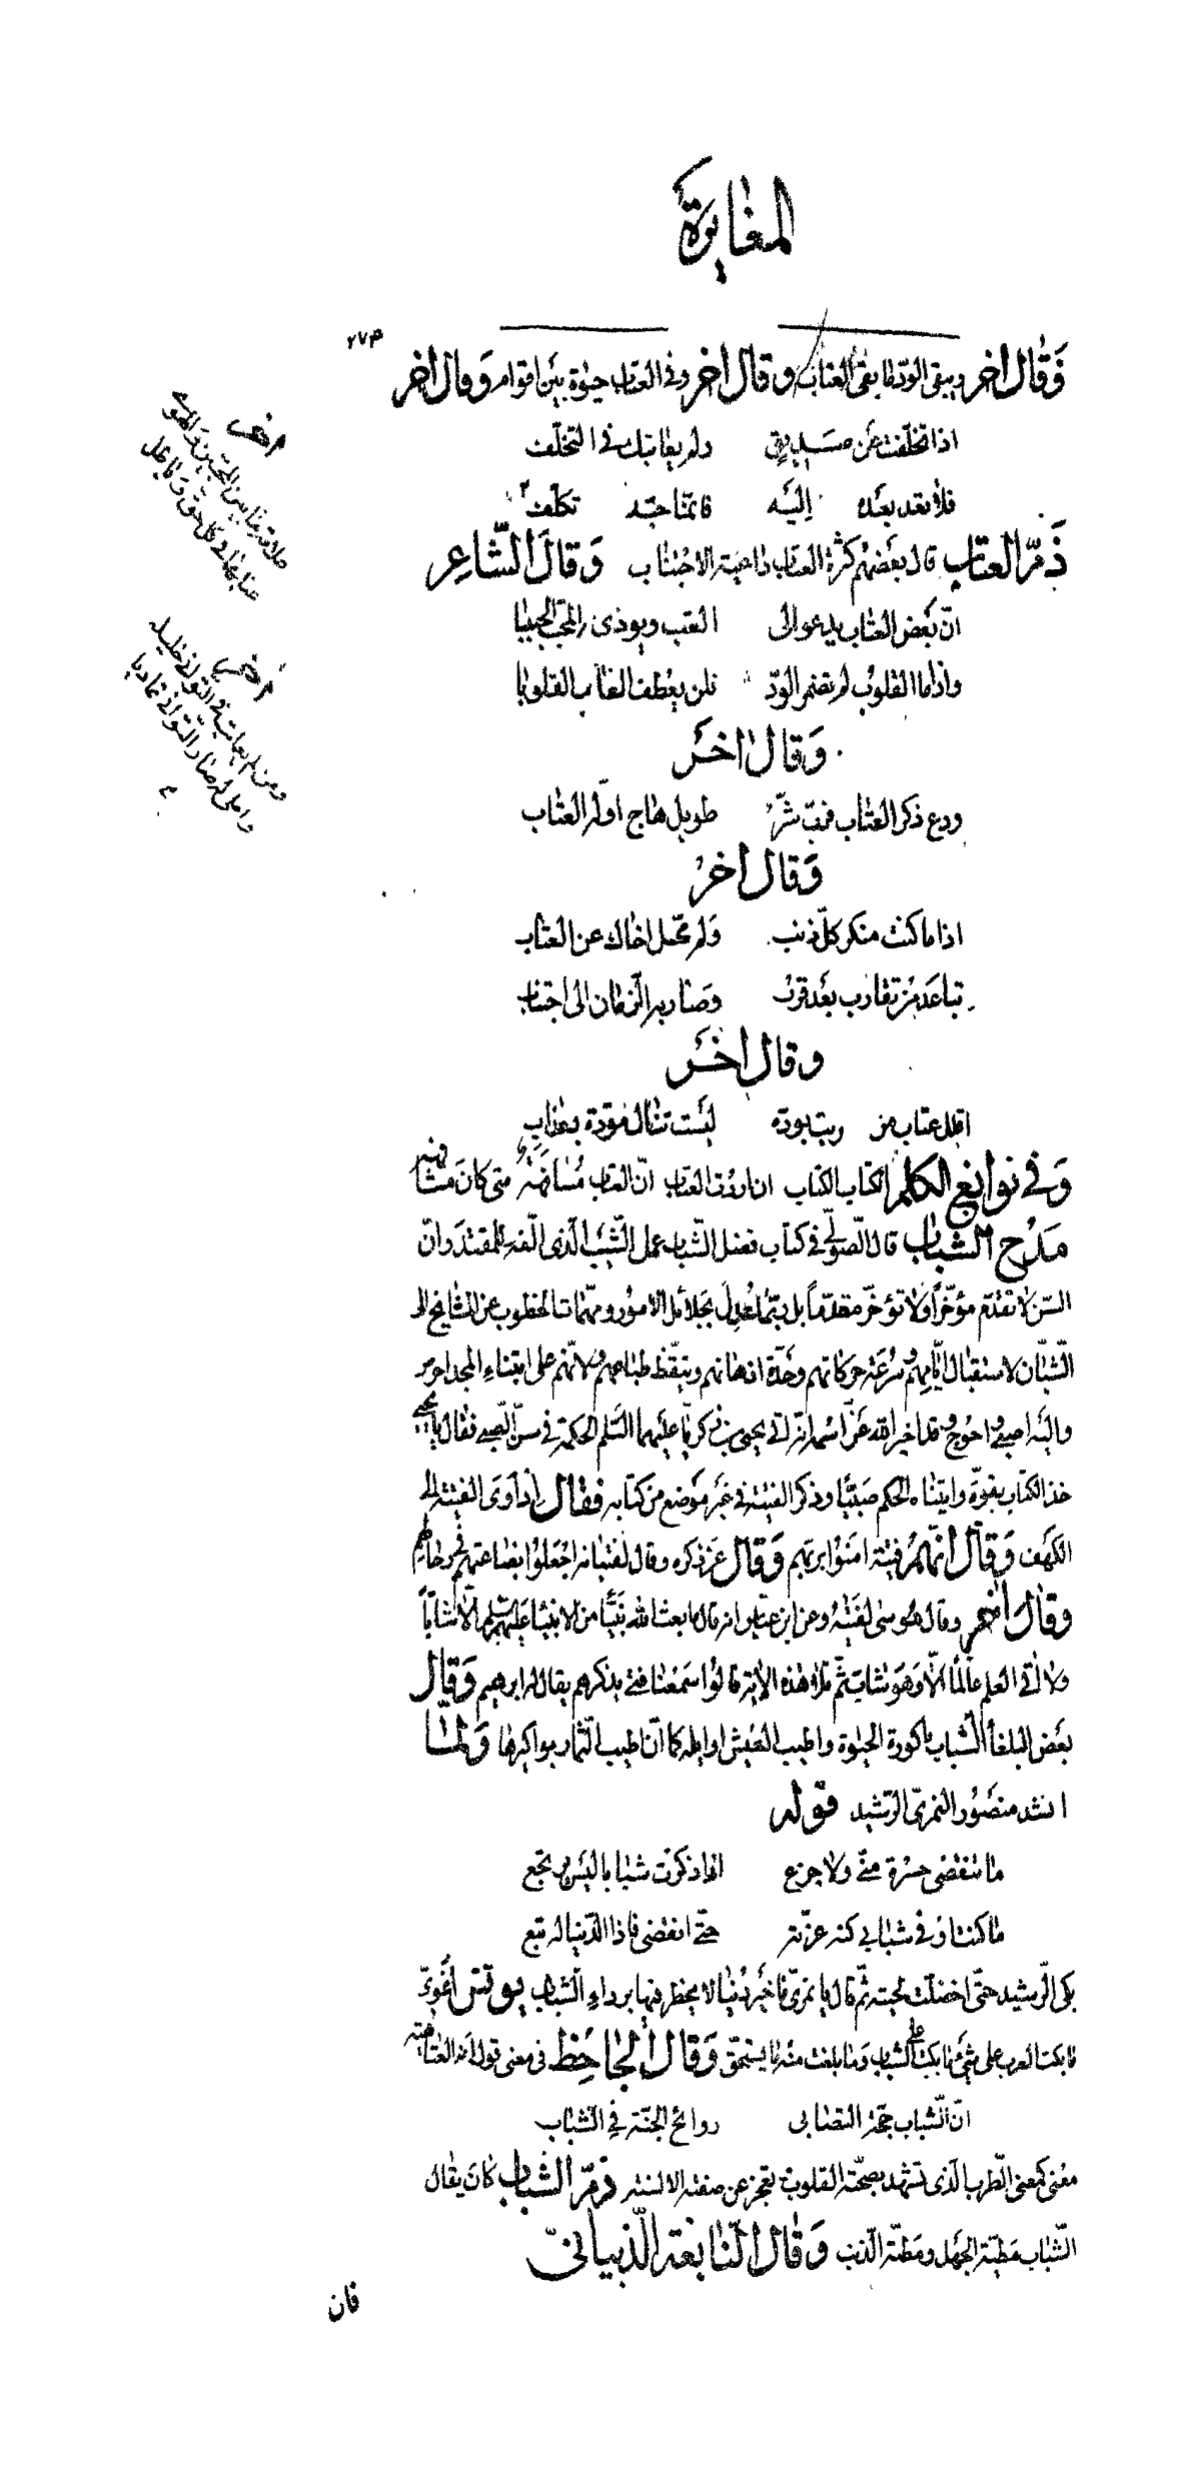 المغايرة
٢٧٣
وَقال اخر ويبقى الودّ ما بقى العتاب وقال اخر وفى العتاب حيٰوة بين اقوام وقال اخر
اذا تخلّفت عن صديق ولم يعاتبك فى التخلّف
فلا تعد بعده اليه فانما حبّه تكلّف
ذمّ العتاب قال بعضهم كثرة العتاب داعية الاجتناب وَقال الشّاعر
انّ بعض العتاب يدعو الى العتب ويوذى به المحبّ الحبيبا
واذا ما القلوب لم تضمر الودّ فلن يعطف العتاب القلوبا
وَقال اخَر
ودع ذكر العتاب فربّ شرّ طويل هاج اوّله العتاب
وَقال اخر
اذا ما كنت منكر كلّ ذنب وَلم تحمل اخاك عن العتاب
تباعد من تقارب بعد قرب وصار به الزمان الى اجتناب
وقال اخَر
اقلل عتاب من بودّه ليست تنال مودة بعتاب
وَفى نوابغ الكلم الكتاب الكتاب ان اردت العتاب انّ العتاب مُسافهة متى كان مشافهة
مَدح الشباب قال الصّولى فى كتاب فضل الشّباب على الشّيب الّذى الّفه للمقتدر وانّ
السّن لا تقدّم مؤخّراً ولا تؤخّر مقدّماً بل ربّما عُدل بجلائل الامور ومهمّات الخطوب عن المشايخ الى
الشّبّان لاستقبال ايّامهم وسُرعة حركاتهم وحدّة اذهانهم وتيقّظ طباعهم ولانّهم على ابتناء المجد احرص
واليه اصبى واحوج وقد اخبر الله عزّ اسمه انه اتى يحيى بن زكريّا عليهما السّلم الحكمة فى سنّ الصبى فقال يا يحيى
خذ الكتاب بقوّة واتيناه الحكم صبيّا وذكر الفتية فى غير موضع من كتابه فقال اذ اوى الفتية الى
الكهف وَقال انّهم فتية امنوا بربّهم وَقال عزّ ذكره وقال لفتيانه اجعلوا بضاعتهم فى رحالهم
وقال اخر وقال موسى لفتيٰه وعن ابن عبّاس انه قال ما بعث الله نبيّا من الانبيا عليهم السلم الّا شابّاً
ولا اتى العلم عالما الّا وهو شاب ثمّ تلا هذه الاية قالوا سمعنا فتى يذكرهم يقال له ابرٰهيم وَقال
بعض البلغأ الشّباب باكورة الحيٰوة واطيب العيش اوايله كما انّ اطيب الثّمار بواكيرها وَلمّا
انشد منصور النمرىّ الرّشيد قوله
ما تنقضى حسرة منّى ولا جزع اذا ذكرت شبابا ليس يرتجع
ما كنت اوفى شبابى كنه عزّته حتّى انقضى فاذا الدّنيا له تبع
بكى الرّشيد حتّى اخضلّت لحيته ثمّ قال يا نمرىّ ما خير دنيا لا يخطر فيها برداء الشّباب يونس النحوىّ
ما بكت العرب على شئ ما بكت على الشّباب وما بلغت منه ما يستحقّ وَقال الجاحظ فى معنى قول ابى العتاهية
انّ الشّباب حجّة التصابى روائح الجنّة فى الشّباب
معنى كمعنى الطّرب الّذى تشهد بصحّته القلوب وتعجز عن صفته الالسنة ذمّ الشّباب كان يقال
الشّباب مطيّة الجهل ومظنّة الذنب وَقال النّابغة الذّبيانىّ
فان
اخر
علامة ما بين المحبّين فى الهوى
عتابهما فى كل حق وباطل
اخر
ومن لم يعاتب فى التوانى خليله
وامل له صار التّوانى تماديا